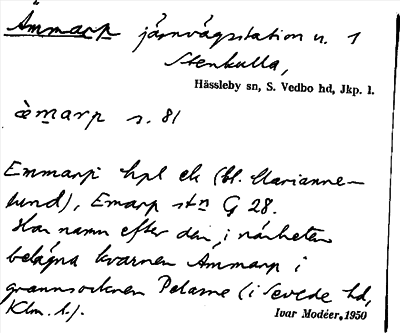 Ämmarp järnvägsstation u. 1
Stenkulla,
Hässleby sn, S. Vedbo hd, Jkp. l.
æ̀marp s. 81
Emmarp hpl ek (bl. Marianne-
lund), Emarp stn G 28.
Har namn efter den i närheten
belägna kvarnen Ammarp i
grannsocknen Pelarne (i Sevede hd,
Klm. l.).
Ivar Modéer, 1950